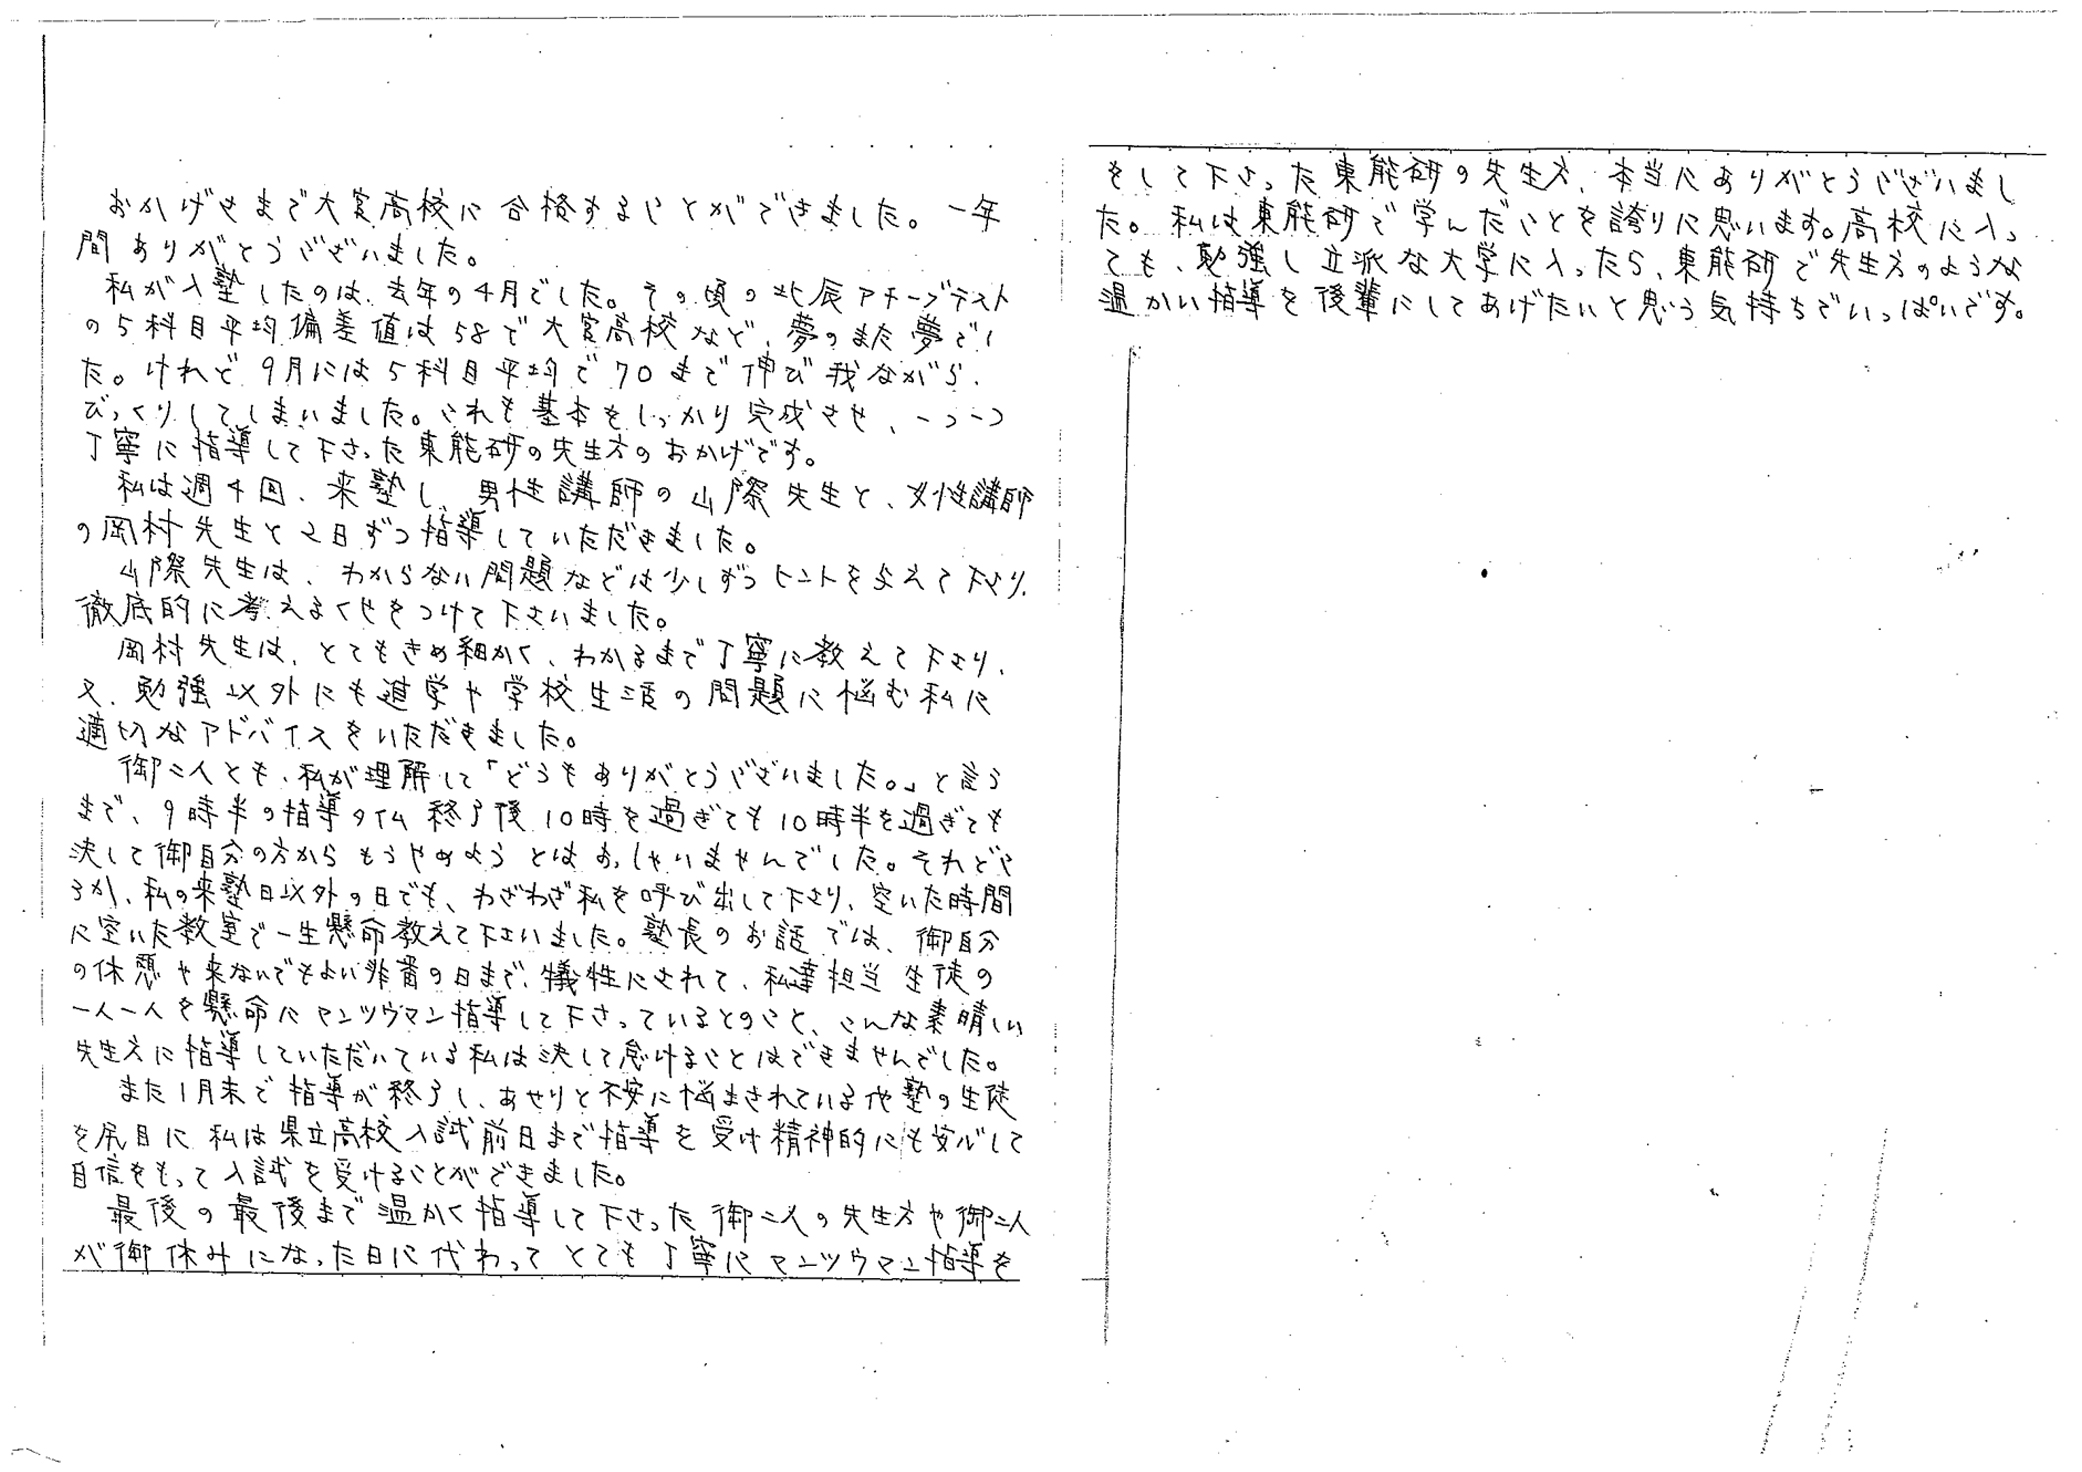 おかげさまで大宮高校に合格することができました。一年
間ありがとうございました。
私が入塾したのは、去年の4月でした。その頃の北辰アチーブテスト
の5科目平均偏差値は58で大宮高校など、夢のまた夢でし
た。けれど9月には5科目平均で70まで伸び我ながら、
びっくりしてしまいました。これも基本をしっかり完成させ、一つ一つ
丁寧に指導して下さった東能研の先生方のおかげです。
私は週4回、来塾し、男性講師の山際先生と、女性講師
の岡村先生と2日ずつ指導していただきました。
山際先生は、わからない問題などは少しずつヒントを与えて下さり、
徹底的に考えるくせをつけて下さいました。
岡村先生は、とてもきめ細かく、わかるまで丁寧に教えて下さり、
又、勉強以外にも進学や学校生活の問題に悩む私に
適切なアドバイスをいただきました。
御二人とも、私が理解して「どうもありがとうございました。」と言う
まで、9時半の指導タイム終了後10時を過ぎても10時半を過ぎても
決して御自分の方からもうやめようとはおっしゃいませんでした。それどこ
ろか、私の来塾日以外の日でも、わざわざ私を呼び出して下さり、空いた時間
に空いた教室で一生懸命教えて下さいました。塾長のお話では、御自分
の休憩や来ないでもよい非番の日まで、犠牲にされて、私達担当生徒の
一人一人を懸命にマンツウマン指導して下さっているとのこと、こんな素晴しい
先生方に指導していただいている私は決して怠けることはできませんでした。
また1月末で指導が終了し、あせりと不安に悩まされている他塾の生徒
を尻目に私は県立高校入試前日まで指導を受け精神的にも安心して
自信をもって入試を受けることができました。
最後の最後まで温かく指導して下さった御二人の先生方や御二人
が御休みになった日に代わってとても丁寧にマンツウマン指導を
をして下さった東能研の先生方、本当にありがとうございまし
た。私は東能研で学んだことを誇りに思います。高校に入っ
ても、勉強し立派な大学に入ったら、東能研で先生方のような
温かい指導を後輩にしてあげたいと思う気持ちでいっぱいです。